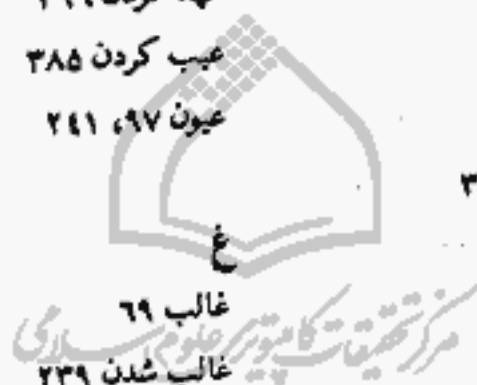 عیب کردن ۳۸۵
عیون ۹۷، ۲٤۱
غ
غالب ٦۹
غالب شدن ۲۳۹
مرکز تحقیقات کامپیوتری علوم اسلامی